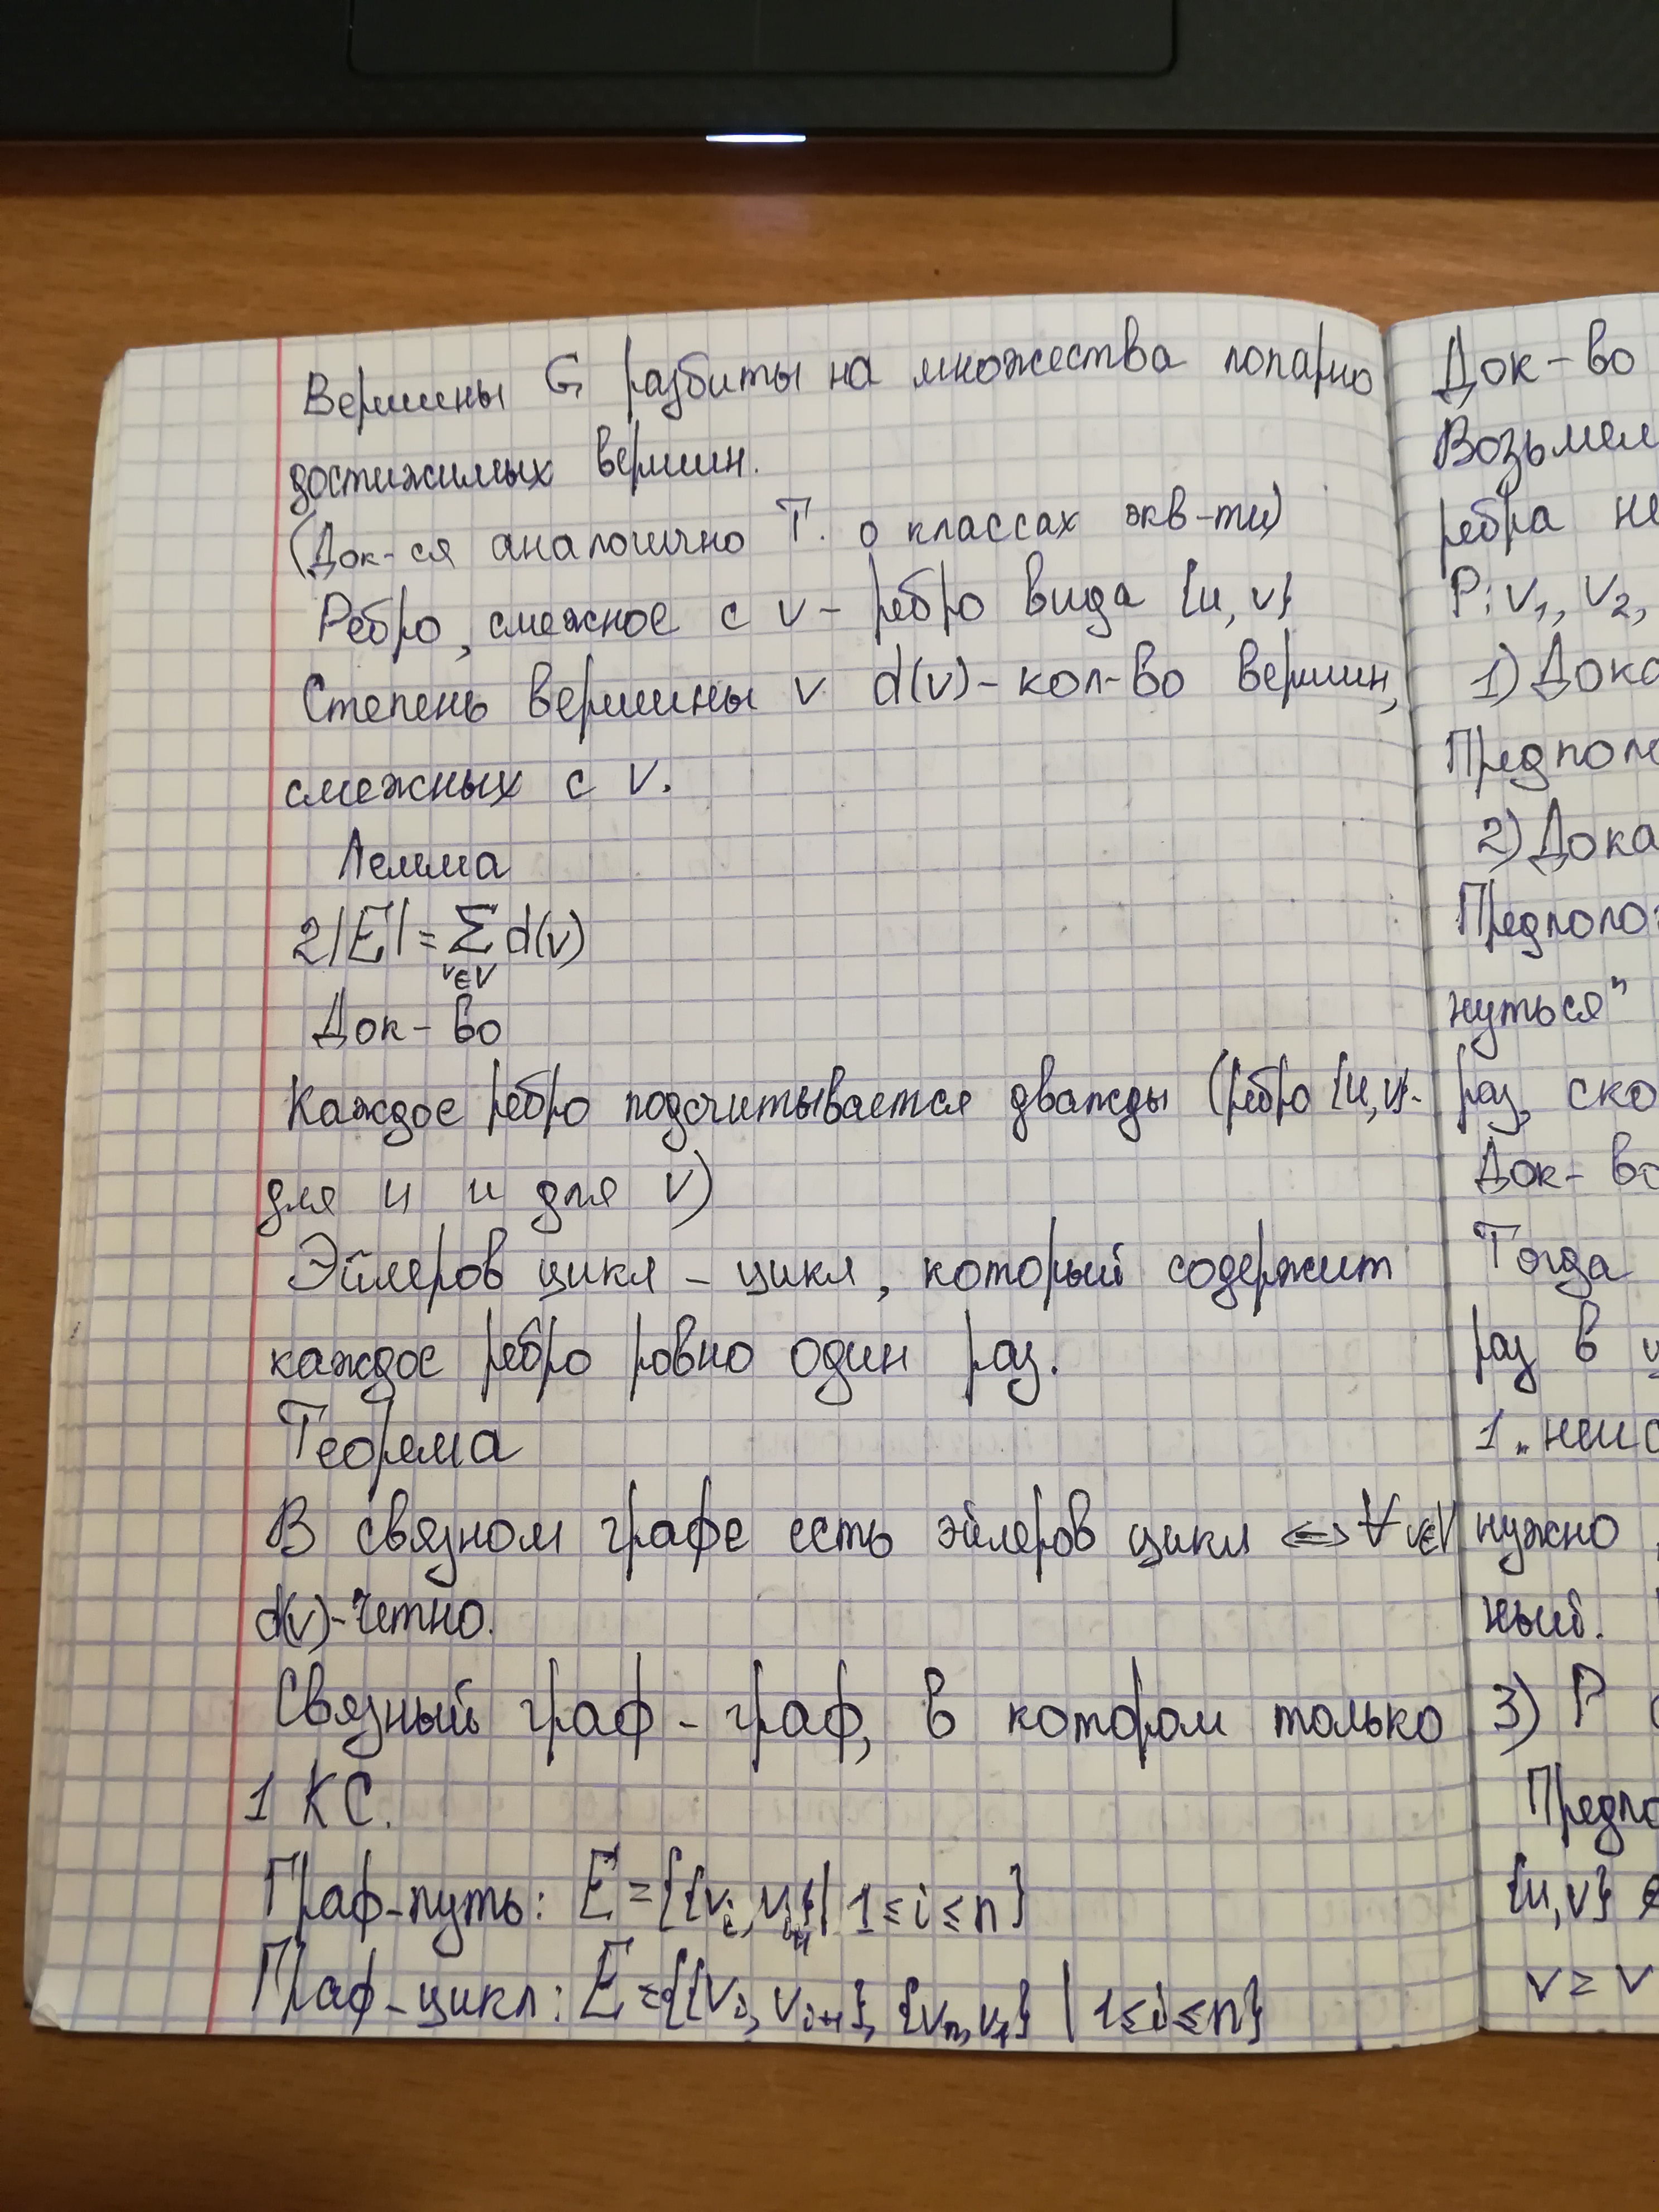 Вершины G разбиты на множества попарно
достижимых вершин.
(Док-ся аналогично Т. о классах экв-ти)
Ребро, смежное с v - ребро вида {u, v}
Степень вершины v d(v) - кол-во вершин,
смежных с v.
Лемма
2|E| = Σ d(v)
v∈V
Док-во
Каждое ребро подсчитывается дважды (ребро {u,v}-
для u и для v)
Эйлеров цикл - цикл, который содержит
каждое ребро ровно один раз.
Теорема
В связном графе есть эйлеров цикл <=> ∀ v∈V
d(v)-четно.
Связный граф - граф, в котором только
1 КС.
Граф-путь: E = {{v_i, v_{i+1}} | 1≤i≤n}
Граф-цикл: E = {{v_i, v_{i+1}}, {v_n, v_1} | 1≤i≤n}
Док-во
Возьмем
ребра не
P: v₁, v₂,
1) Дока
Предполо
2) Дока
Предполо
нуться"
раз, ско
Док-во
Тогда
раз в
1 „неис
нужно
ный.
3) P
Предпо
{u, v}
v = v